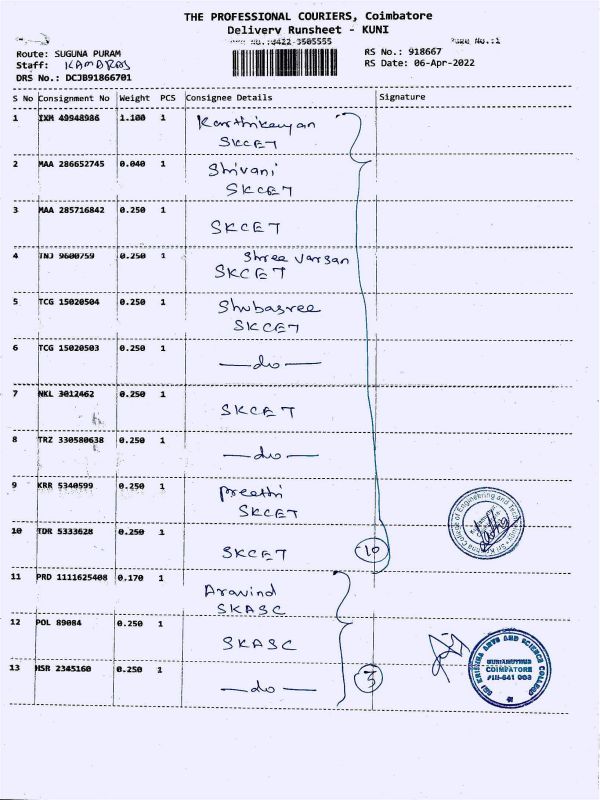 THE PROFESSIONAL COURIERS, Coimbatore
Delivery Runsheet - KUNI
Route: SUGUNA PURAM
Staff: KAMARAJ
DRS No.: DCJB91866701
No.:0422-3505555
Page No.:1
RS No.: 918667
RS Date: 06-Apr-2022
S No Consignment No Weight PCS Consignee Details Signature
1 IXM 49948986 1.100 1 Karthikeyan
SKCET
2 MAA 286652745 0.040 1 Shivani
SKCET
3 MAA 285716842 0.250 1
SKCET
4 TNJ 9600759 0.250 1 Shree Varsan
SKCET
5 TCG 15020504 0.250 1 Shubasree
SKCET
6 TCG 15020503 0.250 1
—do—
7 NKL 3012462 0.250 1
SKCET
8 TRZ 330580638 0.250 1
—do—
9 KRR 5340599 0.250 1 Preethi
SKCET
10 TDR 5333628 0.250 1
SKCET
10
11 PRD 1111625408 0.170 1 Aravind
SKASC
12 POL 89084 0.250 1
SKASC
13 HSR 2345160 0.250 1
—do—
3
College of Engineering and
SRI KRISHNA ARTS AND SCIENCE COLLEGE
KUNIAMUTHUR
COIMBATORE
PIN-641 008